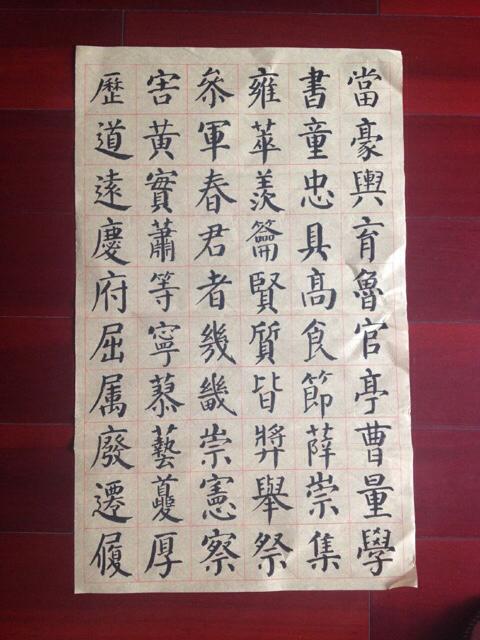 當豪與育魯官亭曹量學
書童忠具高食節薛崇集
雍華羨籥賢質皆舉祭
叅軍春君者幾畿崇憲察
害黃實蕭等寧慕藝夔厚
歷道遠慶府屈属廢遷履